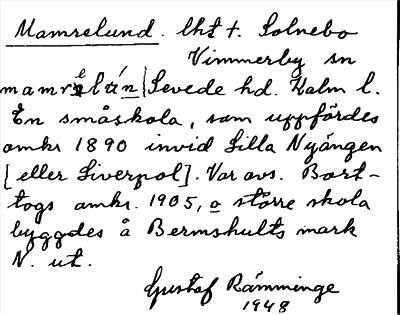 Mamrelund. lht t. Solnebo
Vimmerby sn
mamrelún Sevede hd. Kalm l.
En småskola, som uppfördes
omkr 1890 invid Lilla Nyängen
[eller Liverpol]. Var avs. Bort-
togs omkr. 1905, o större skola
byggdes å Bermshults mark
N. ut.
Gustaf Rämminge
1948